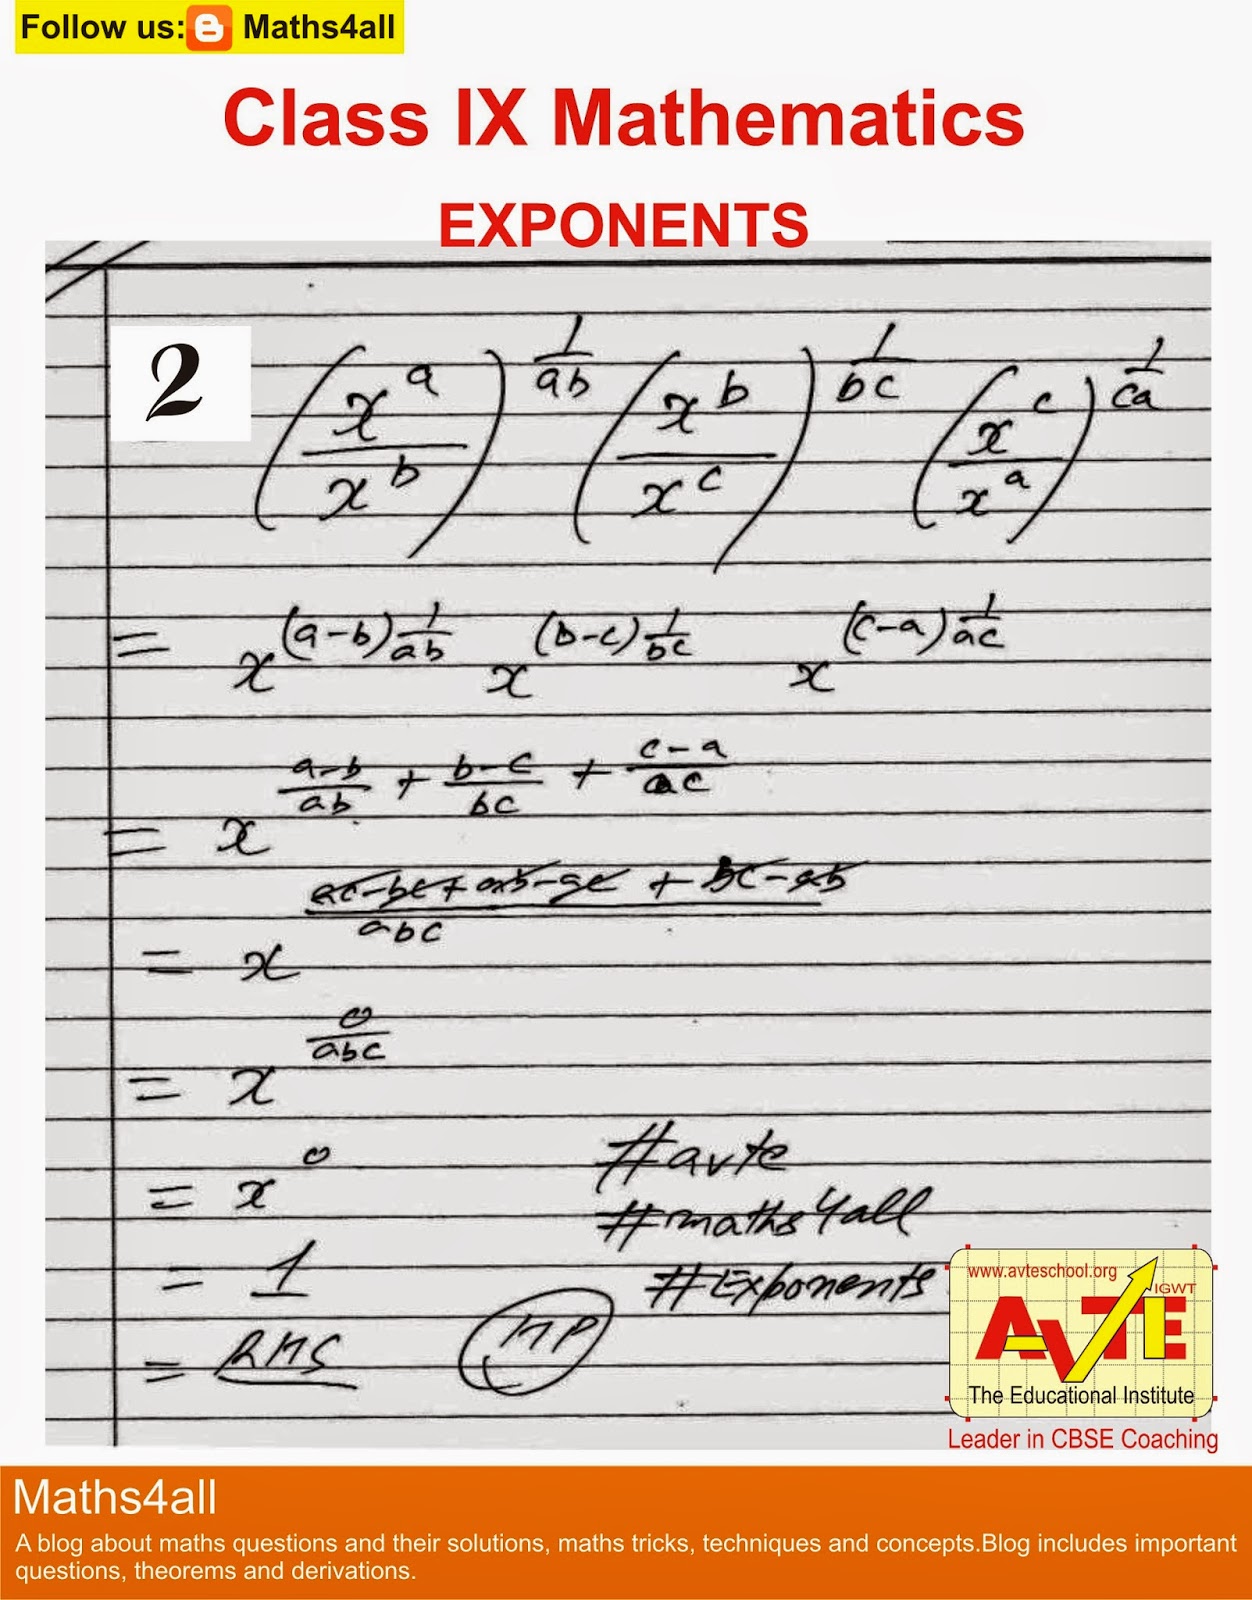 Follow us: Maths4all
Class IX Mathematics
EXPONENTS
2 (x^a/x^b)^(1/ab) (x^b/x^c)^(1/bc) (x^c/x^a)^(1/ca)
= x^((a-b)1/ab) x^((b-c)1/bc) x^((c-a)1/ac)
= x^((a-b)/ab + (b-c)/bc + (c-a)/ac)
= x^((ac-bc+ab-ac + bc-ab)/abc)
= x^(0/abc)
= x^0
= 1
= RHS
#avte
#maths4all
#Exponents
www.avteschool.org
IGWT
AVTE
The Educational Institute
Leader in CBSE Coaching
Maths4all
A blog about maths questions and their solutions, maths tricks, techniques and concepts.Blog includes important
questions, theorems and derivations.